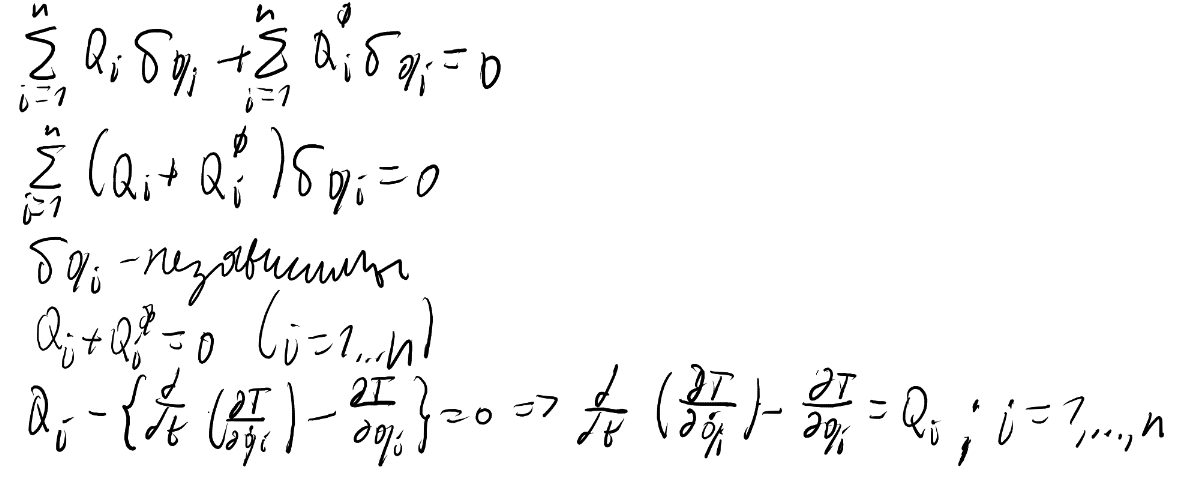 \sum_{i=1}^{n} Q_i δq_i + \sum_{i=1}^{n} Q_i^Φ δq_i = 0
\sum_{i=1}^{n} (Q_i + Q_i^Φ) δq_i = 0
δq_i - независимы
Q_i + Q_i^Φ = 0 (i = 1...n)
Q_i - \{\frac{d}{dt} (\frac{∂T}{∂\dot{q}_i}) - \frac{∂T}{∂q_i}\} = 0 => \frac{d}{dt} (\frac{∂T}{∂\dot{q}_i}) - \frac{∂T}{∂q_i} = Q_i ; i = 1,...,n